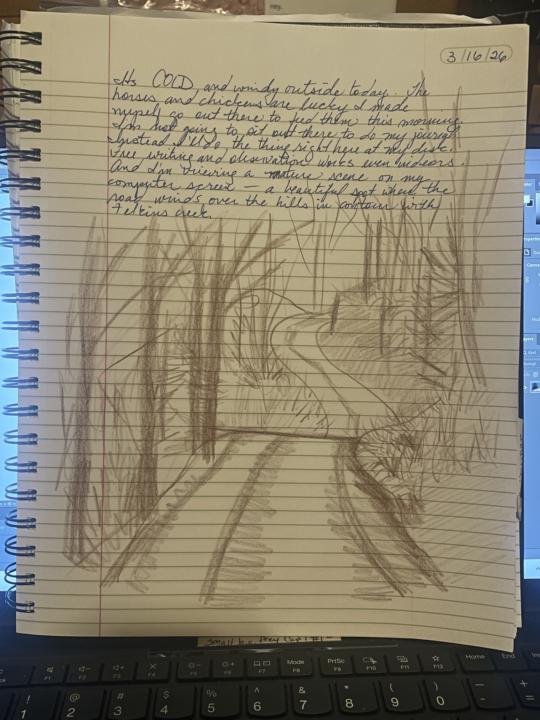 3/16/26
Its COLD, and windy outside today. The
horses and chickens are lucky I made
myself go out there to feed them this morning.
I'm not going to sit out there to do my journal
Instead I'll do the thing right here at my desk.
Free writing and observation works even indoors.
And I'm viewing a nature scene on my
computer screen — a beautiful spot where the
road winds over the hills in contour with
Felkins creek.
ney.
Mode
PrtSc
Home
End
F5
F6
F7
F8
F9
F10
F11
F12
! 1
@ 2
# 3
$ 4
% 5
^ 6
& 7
* 8
( 9
) 0